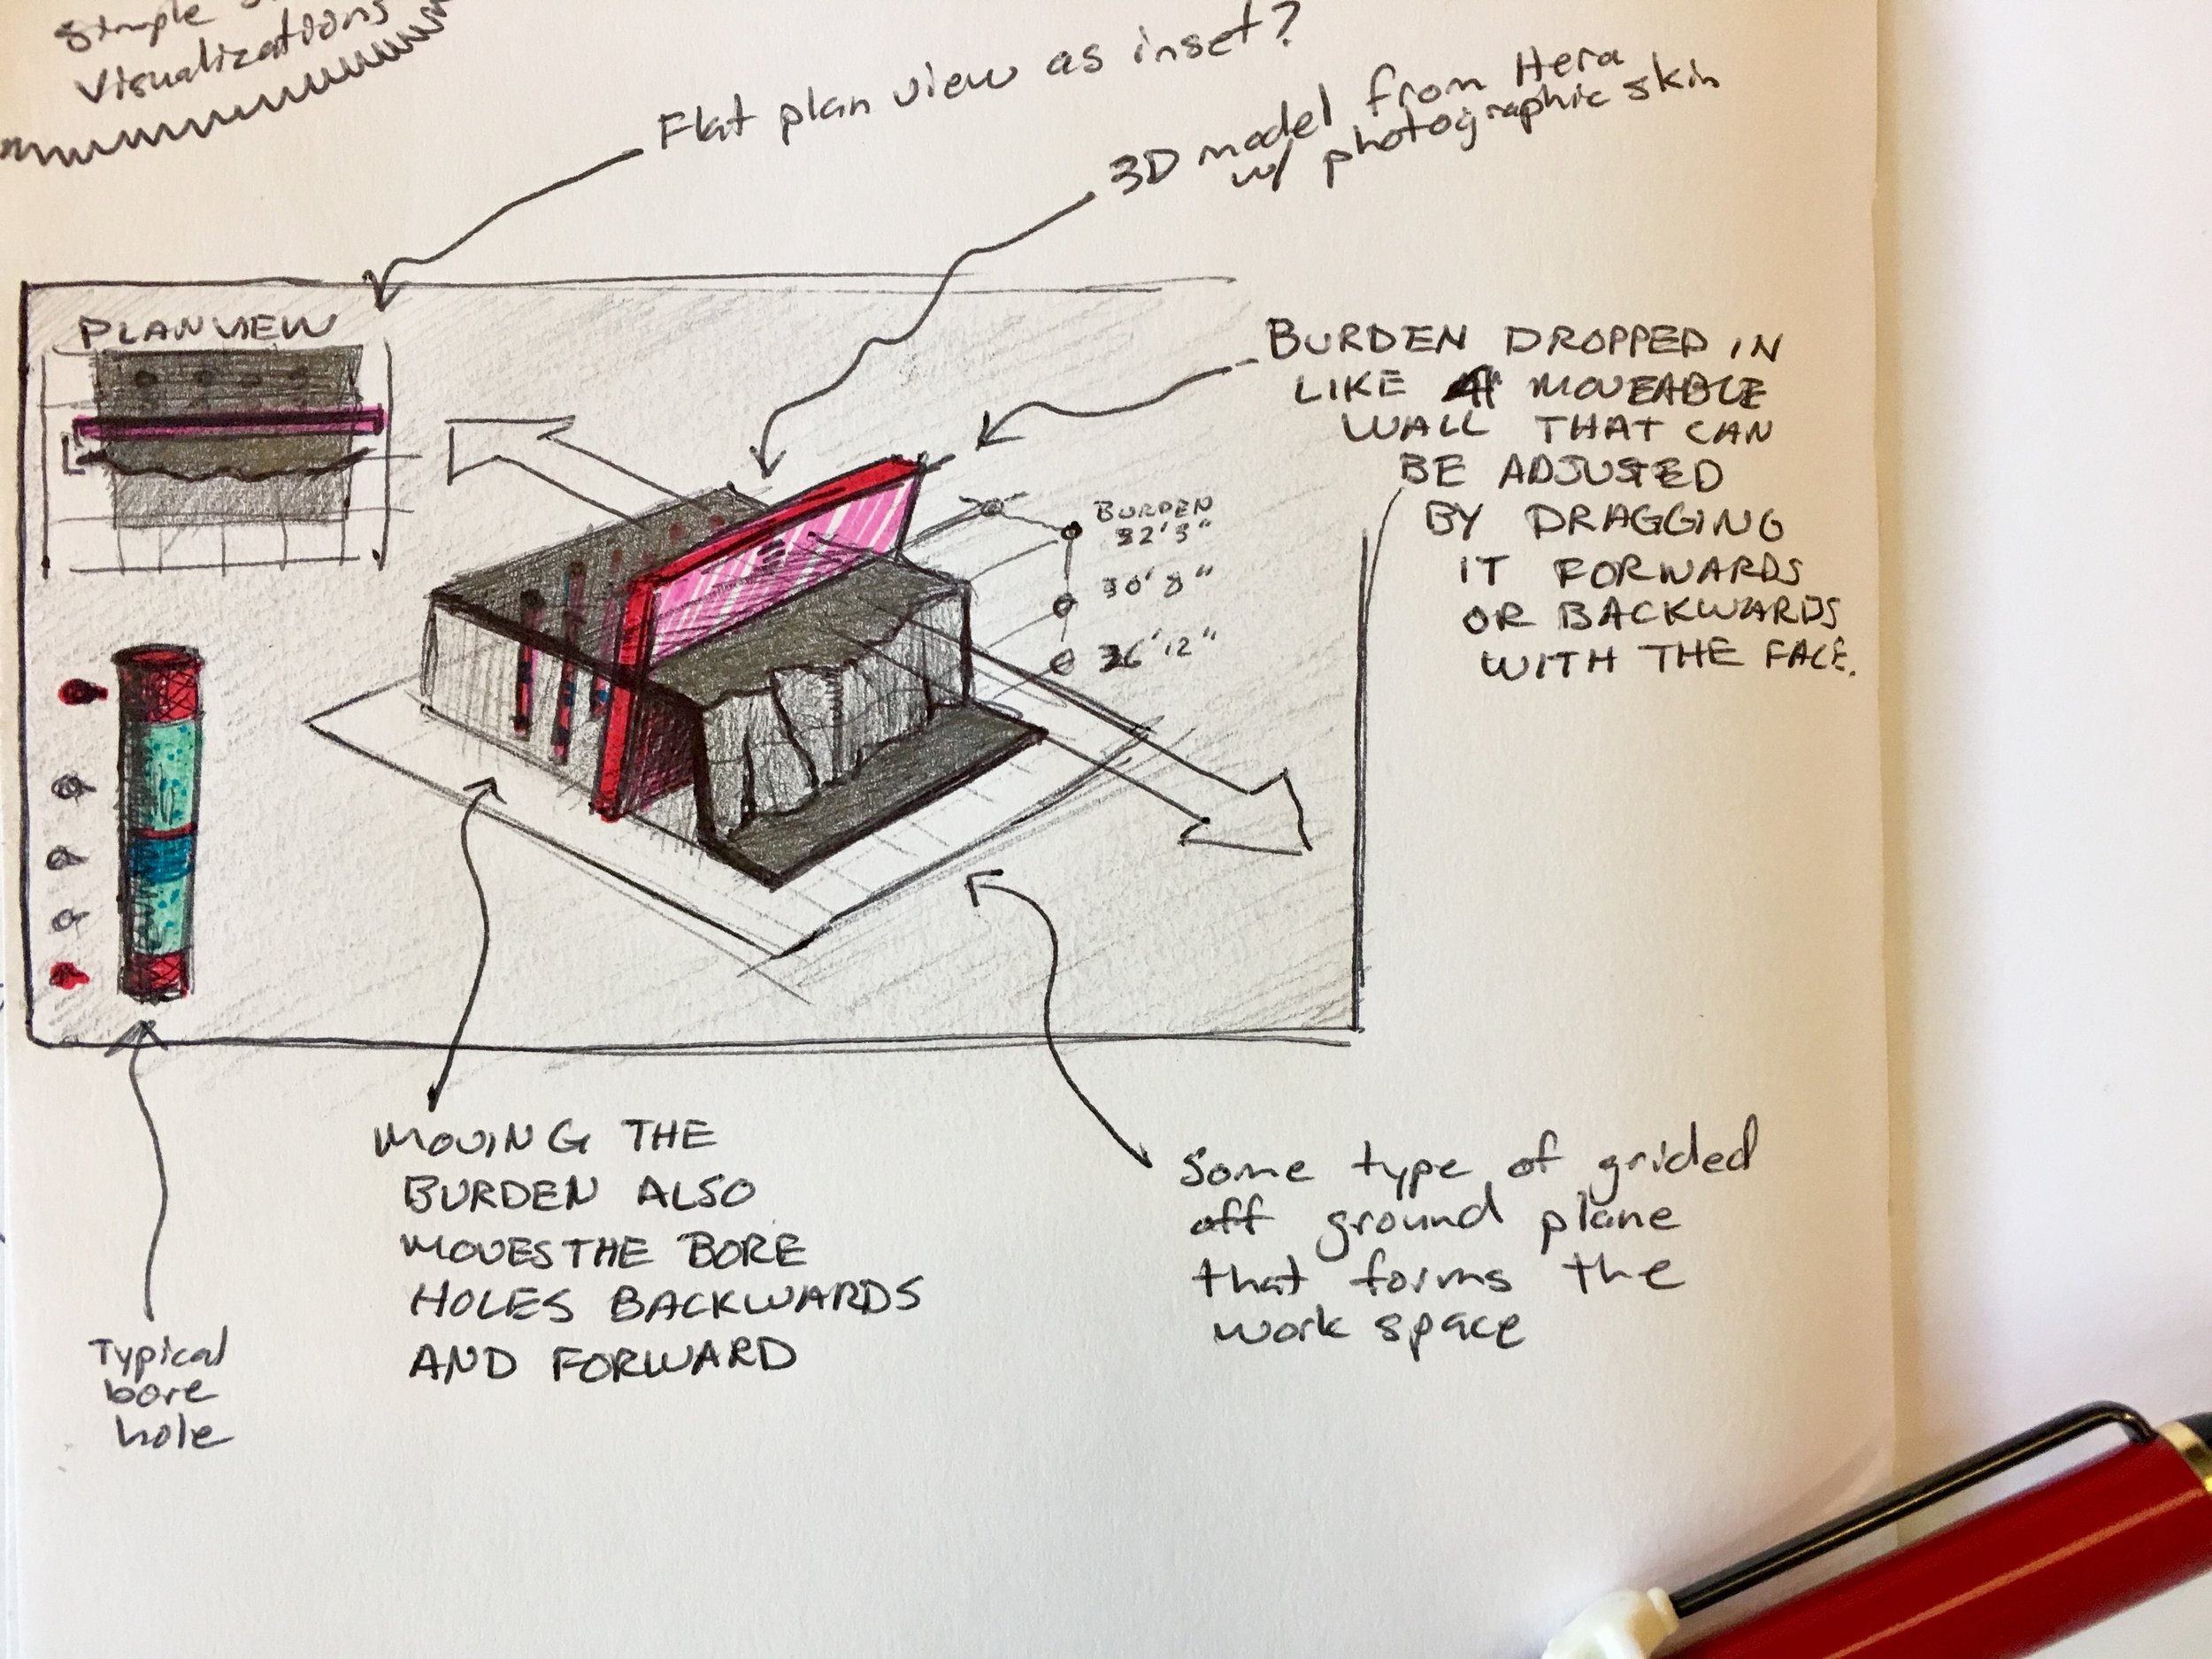 Simple
Visualizations
Flat plan view as inset?
3D model from Hera
w/ photographic skin
PLAN VIEW
BURDEN DROPPED IN
LIKE A MOVEABLE
WALL THAT CAN
BE ADJUSTED
BY DRAGGING
IT FORWARDS
OR BACKWARDS
WITH THE FACE.
BURDEN
32'5"
30'8"
26'12"
MOVING THE
BURDEN ALSO
MOVES THE BORE
HOLES BACKWARDS
AND FORWARD
Some type of grided
off ground plane
that forms the
work space
Typical
bore
hole